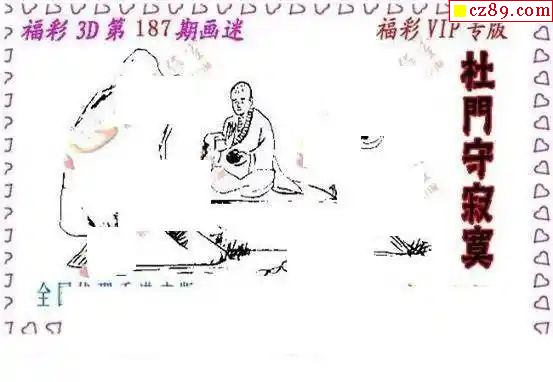 cz89.com
福彩 3D 第 187 期画迷
福彩 VIP 专版
杜門守寂寞
全